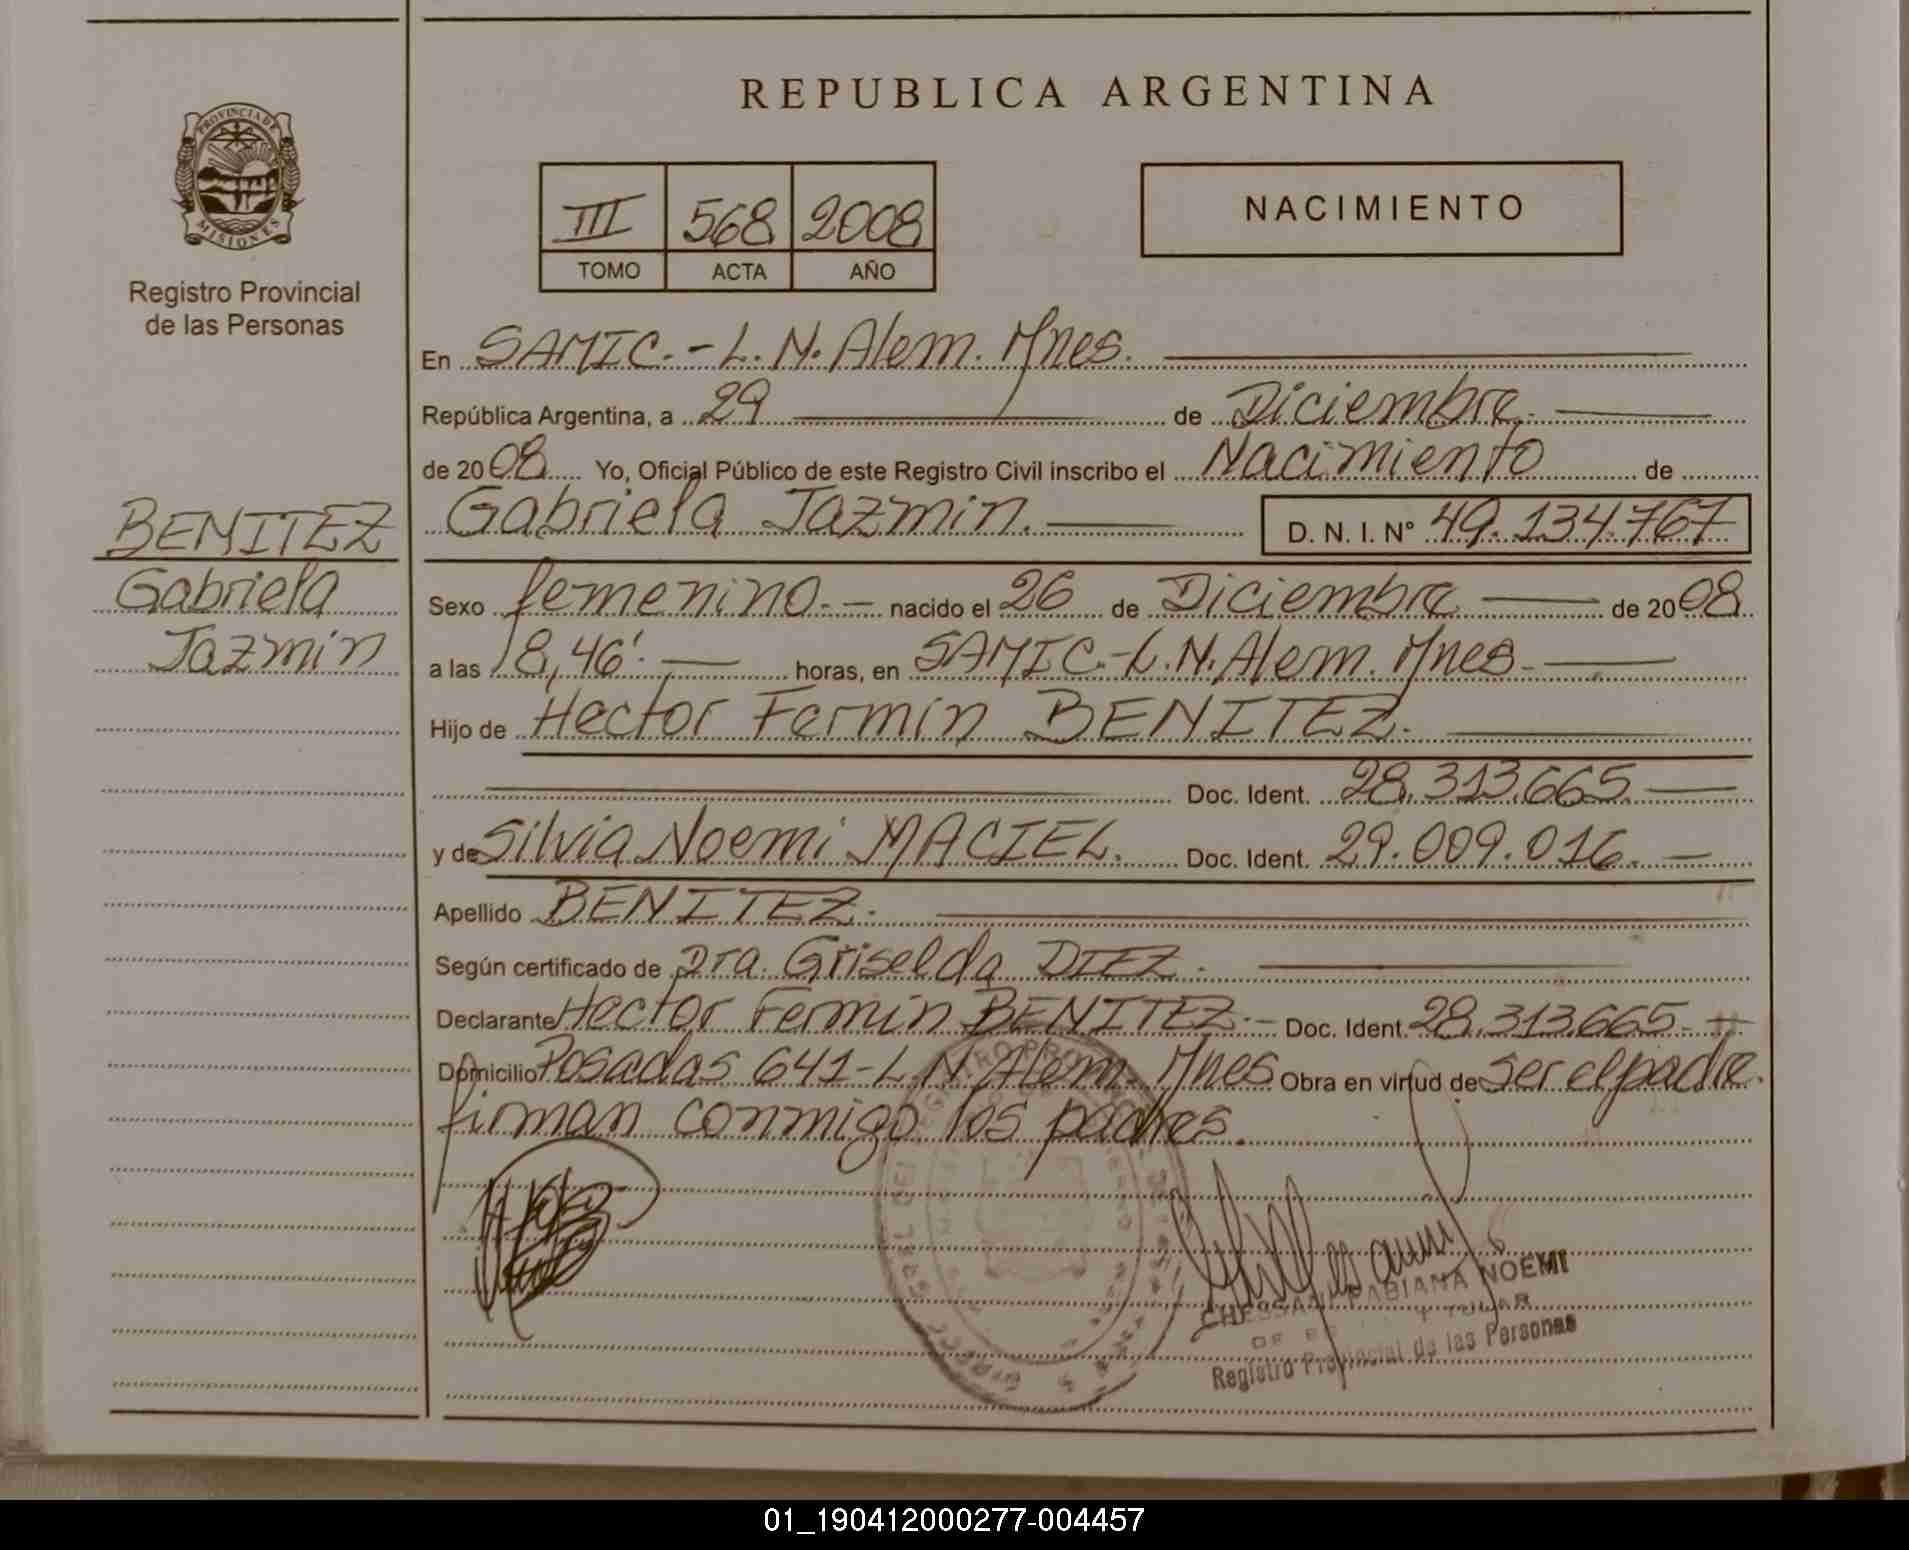 REPUBLICA ARGENTINA
PROVINCIA DE MISIONES
Registro Provincial
de las Personas
III 568 2008
TOMO ACTA AÑO
NACIMIENTO
En SAMIC.-L.N.Alem.Mnes.
República Argentina, a 29 de Diciembre.
de 2008 Yo, Oficial Público de este Registro Civil inscribo el Nacimiento de
Gabriela Jazmin. D. N. I. N° 49.134.767
BENITEZ
Gabriela
Jazmin
Sexo femenino.- nacido el 26 de Diciembre de 2008
a las 18,46'. horas, en SAMIC.-L.N.Alem.Mnes.
Hijo de Hector Fermin BENITEZ.
Doc. Ident. 28.313.665.
y de Silvia Noemi MACIEL. Doc. Ident. 29.009.016.
Apellido BENITEZ.
Según certificado de Dra. Griselda DIEZ.
Declarante Hector Fermin BENITEZ.- Doc. Ident. 28.313.665.
Domicilio Posadas 641-L.N.Alem.Mnes Obra en virtud de ser el padre.
firman conmigo los padres.
FABIANA NOEMI
Registro Provincial de las Personas
01_190412000277-004457